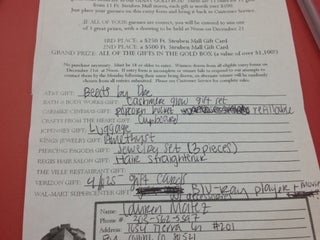 from 11 Ft. Steuben Mall stores, each gift is worth over $100.
Just place your guesses on this entry form and bring it back to Customer Service.
IF ALL OF YOUR guesses are correct, you will be entered to win one
of 3 great prizes, with a drawing to be held at Noon on December 21
3RD PLACE: A $250 Ft. Steuben Mall Gift Card
2ND PLACE: A $500 Ft. Steuben Mall Gift Card
GRAND PRIZE: ALL OF THE GIFTS IN THE GOLD BOX (a value of over $1,100!)
No purchase necessary. Must be 18 or older to enter. Winners drawn from all eligible entry forms on
December 21st at Noon. If entry form is incomplete or winner fails to respond to our attempts to
contact them by the Monday following their name being drawn, an alternate winner will be randomly
chosen from all entries submitted. Please see Customer Service for complete rules.
AT&T GIFT: Beats by Dre
BATH & BODY WORKS GIFT: Cashmere glow gift set
CARMIKE CINEMAS GIFT: popcorn refillable
CRAFTS FROM THE HEART GIFT: cupboard
JCPENNEY GIFT: Luggage
KINGS JEWELRY GIFT: Amethyst
PIERCING PAGODA GIFT: Jewelry set (3 pieces)
REGIS HAIR SALON GIFT: Hair straightener
THE VILLE RESTAURANT GIFT:
VERIZON GIFT: 4/$25 - gift cards
WAL-MART SUPERCENTER GIFT: Blu-Ray player + Movie
Name: Lauren
Phone #
Address: